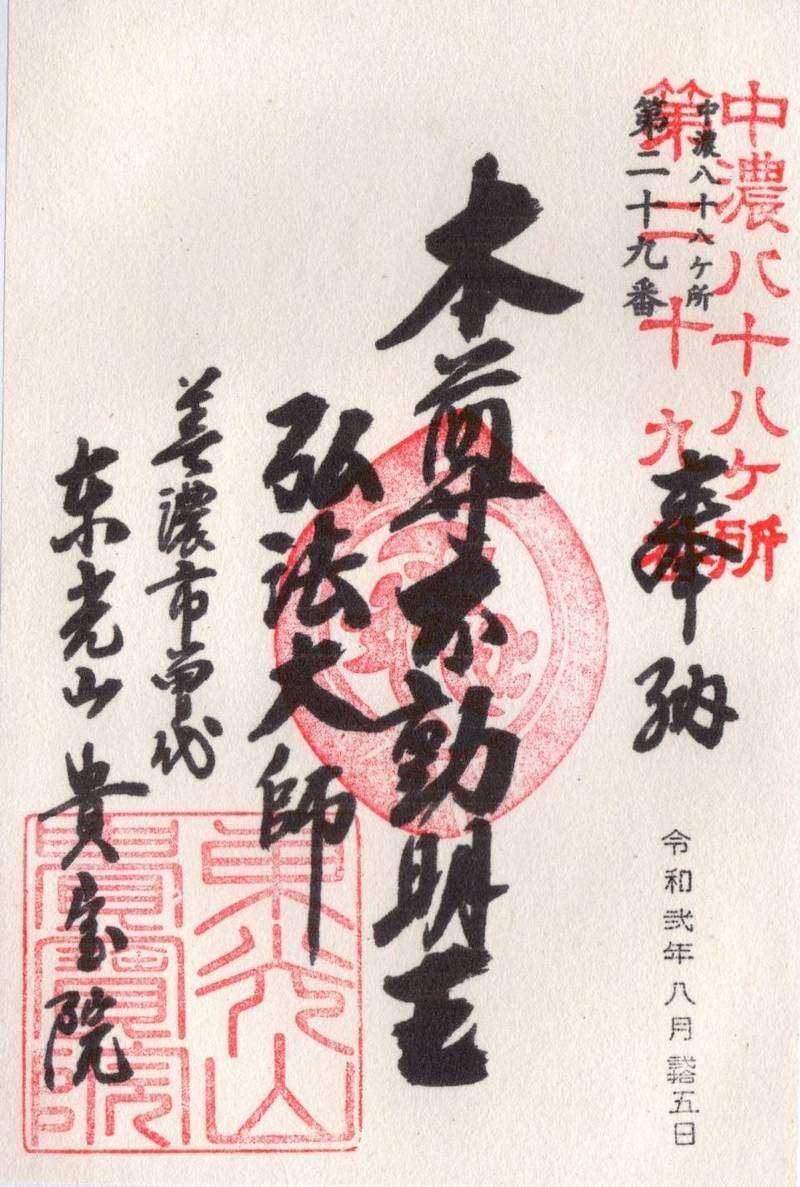 中濃八十八ケ所
第二十九番
中濃八十八ケ所
第二十九番
奉納
令和弐年八月弐拾五日
本尊不動明王
弘法大師
美濃市曽代
东光山 貴宝院
東光山
貴寶院